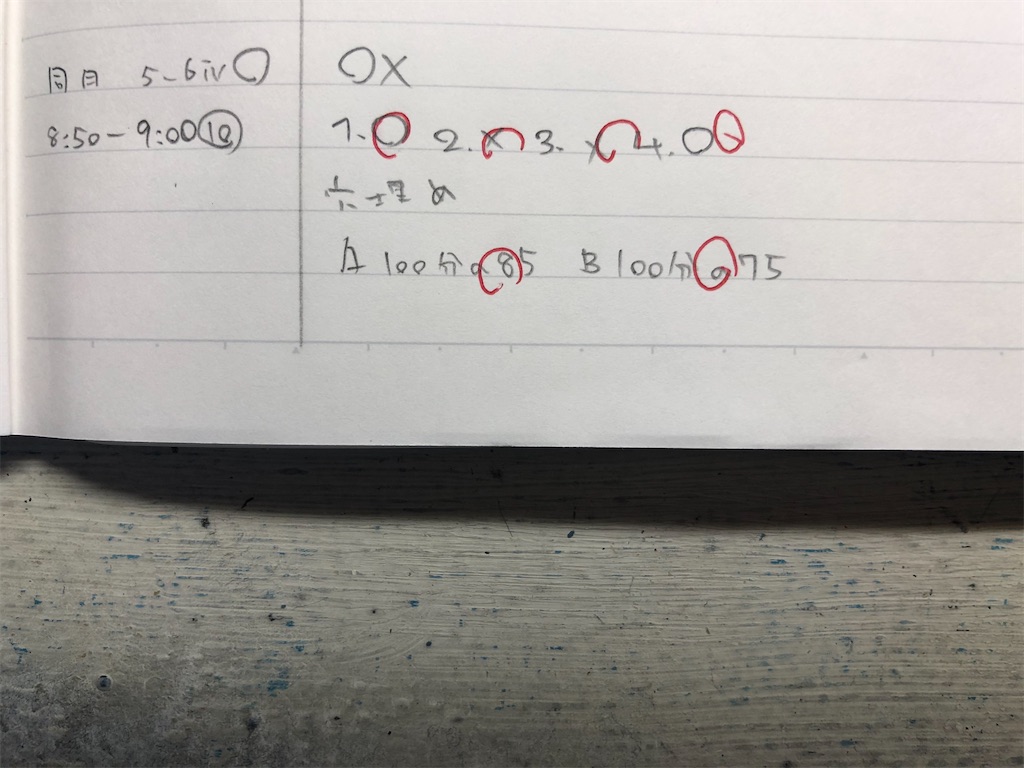 同日 5-6iv○ ○×
8:50-9:00⑩ 1.○ 2.× 3.× 4.○
A 100分の85 B 100分の75